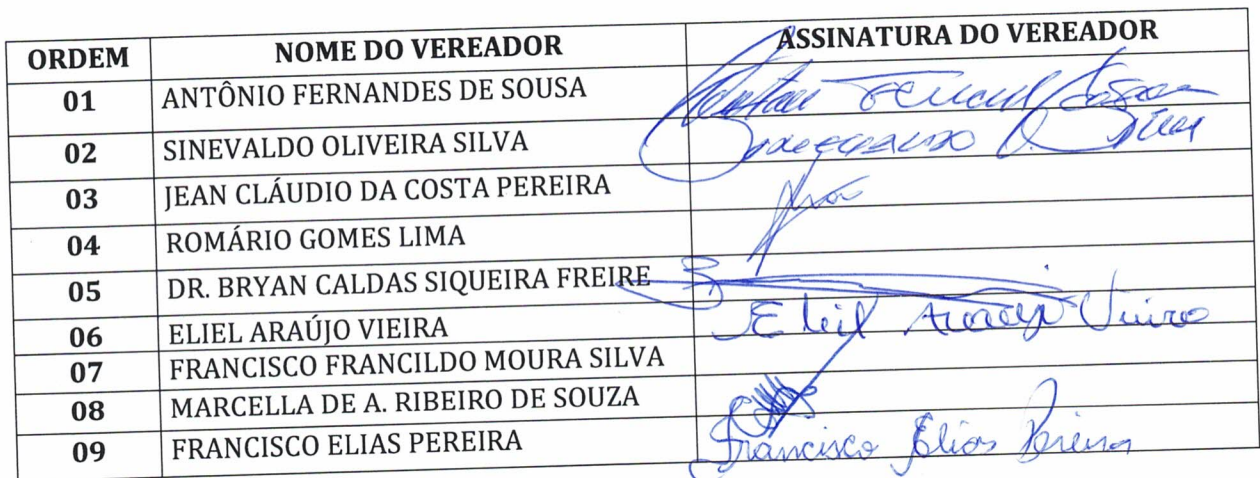 ORDEM NOME DO VEREADOR ASSINATURA DO VEREADOR
01 ANTÔNIO FERNANDES DE SOUSA
02 SINEVALDO OLIVEIRA SILVA
03 JEAN CLÁUDIO DA COSTA PEREIRA
04 ROMÁRIO GOMES LIMA
05 DR. BRYAN CALDAS SIQUEIRA FREIRE
06 ELIEL ARAÚJO VIEIRA Eliel Araujo Vieira
07 FRANCISCO FRANCILDO MOURA SILVA
08 MARCELLA DE A. RIBEIRO DE SOUZA
09 FRANCISCO ELIAS PEREIRA Francisco Elias Pereira